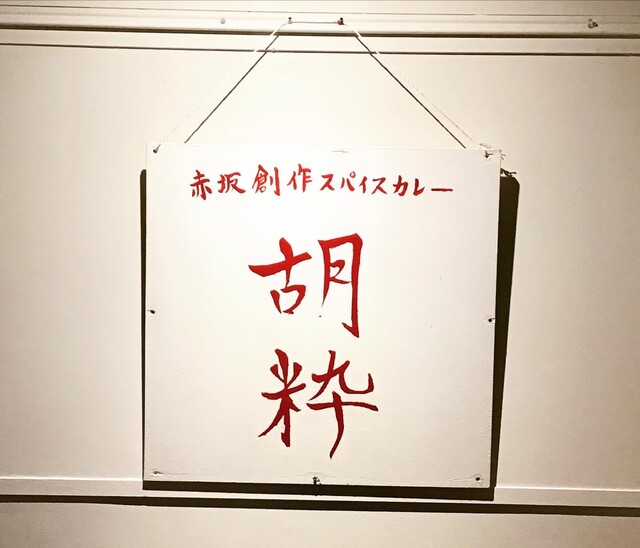 赤坂創作スパイスカレー
胡
粋